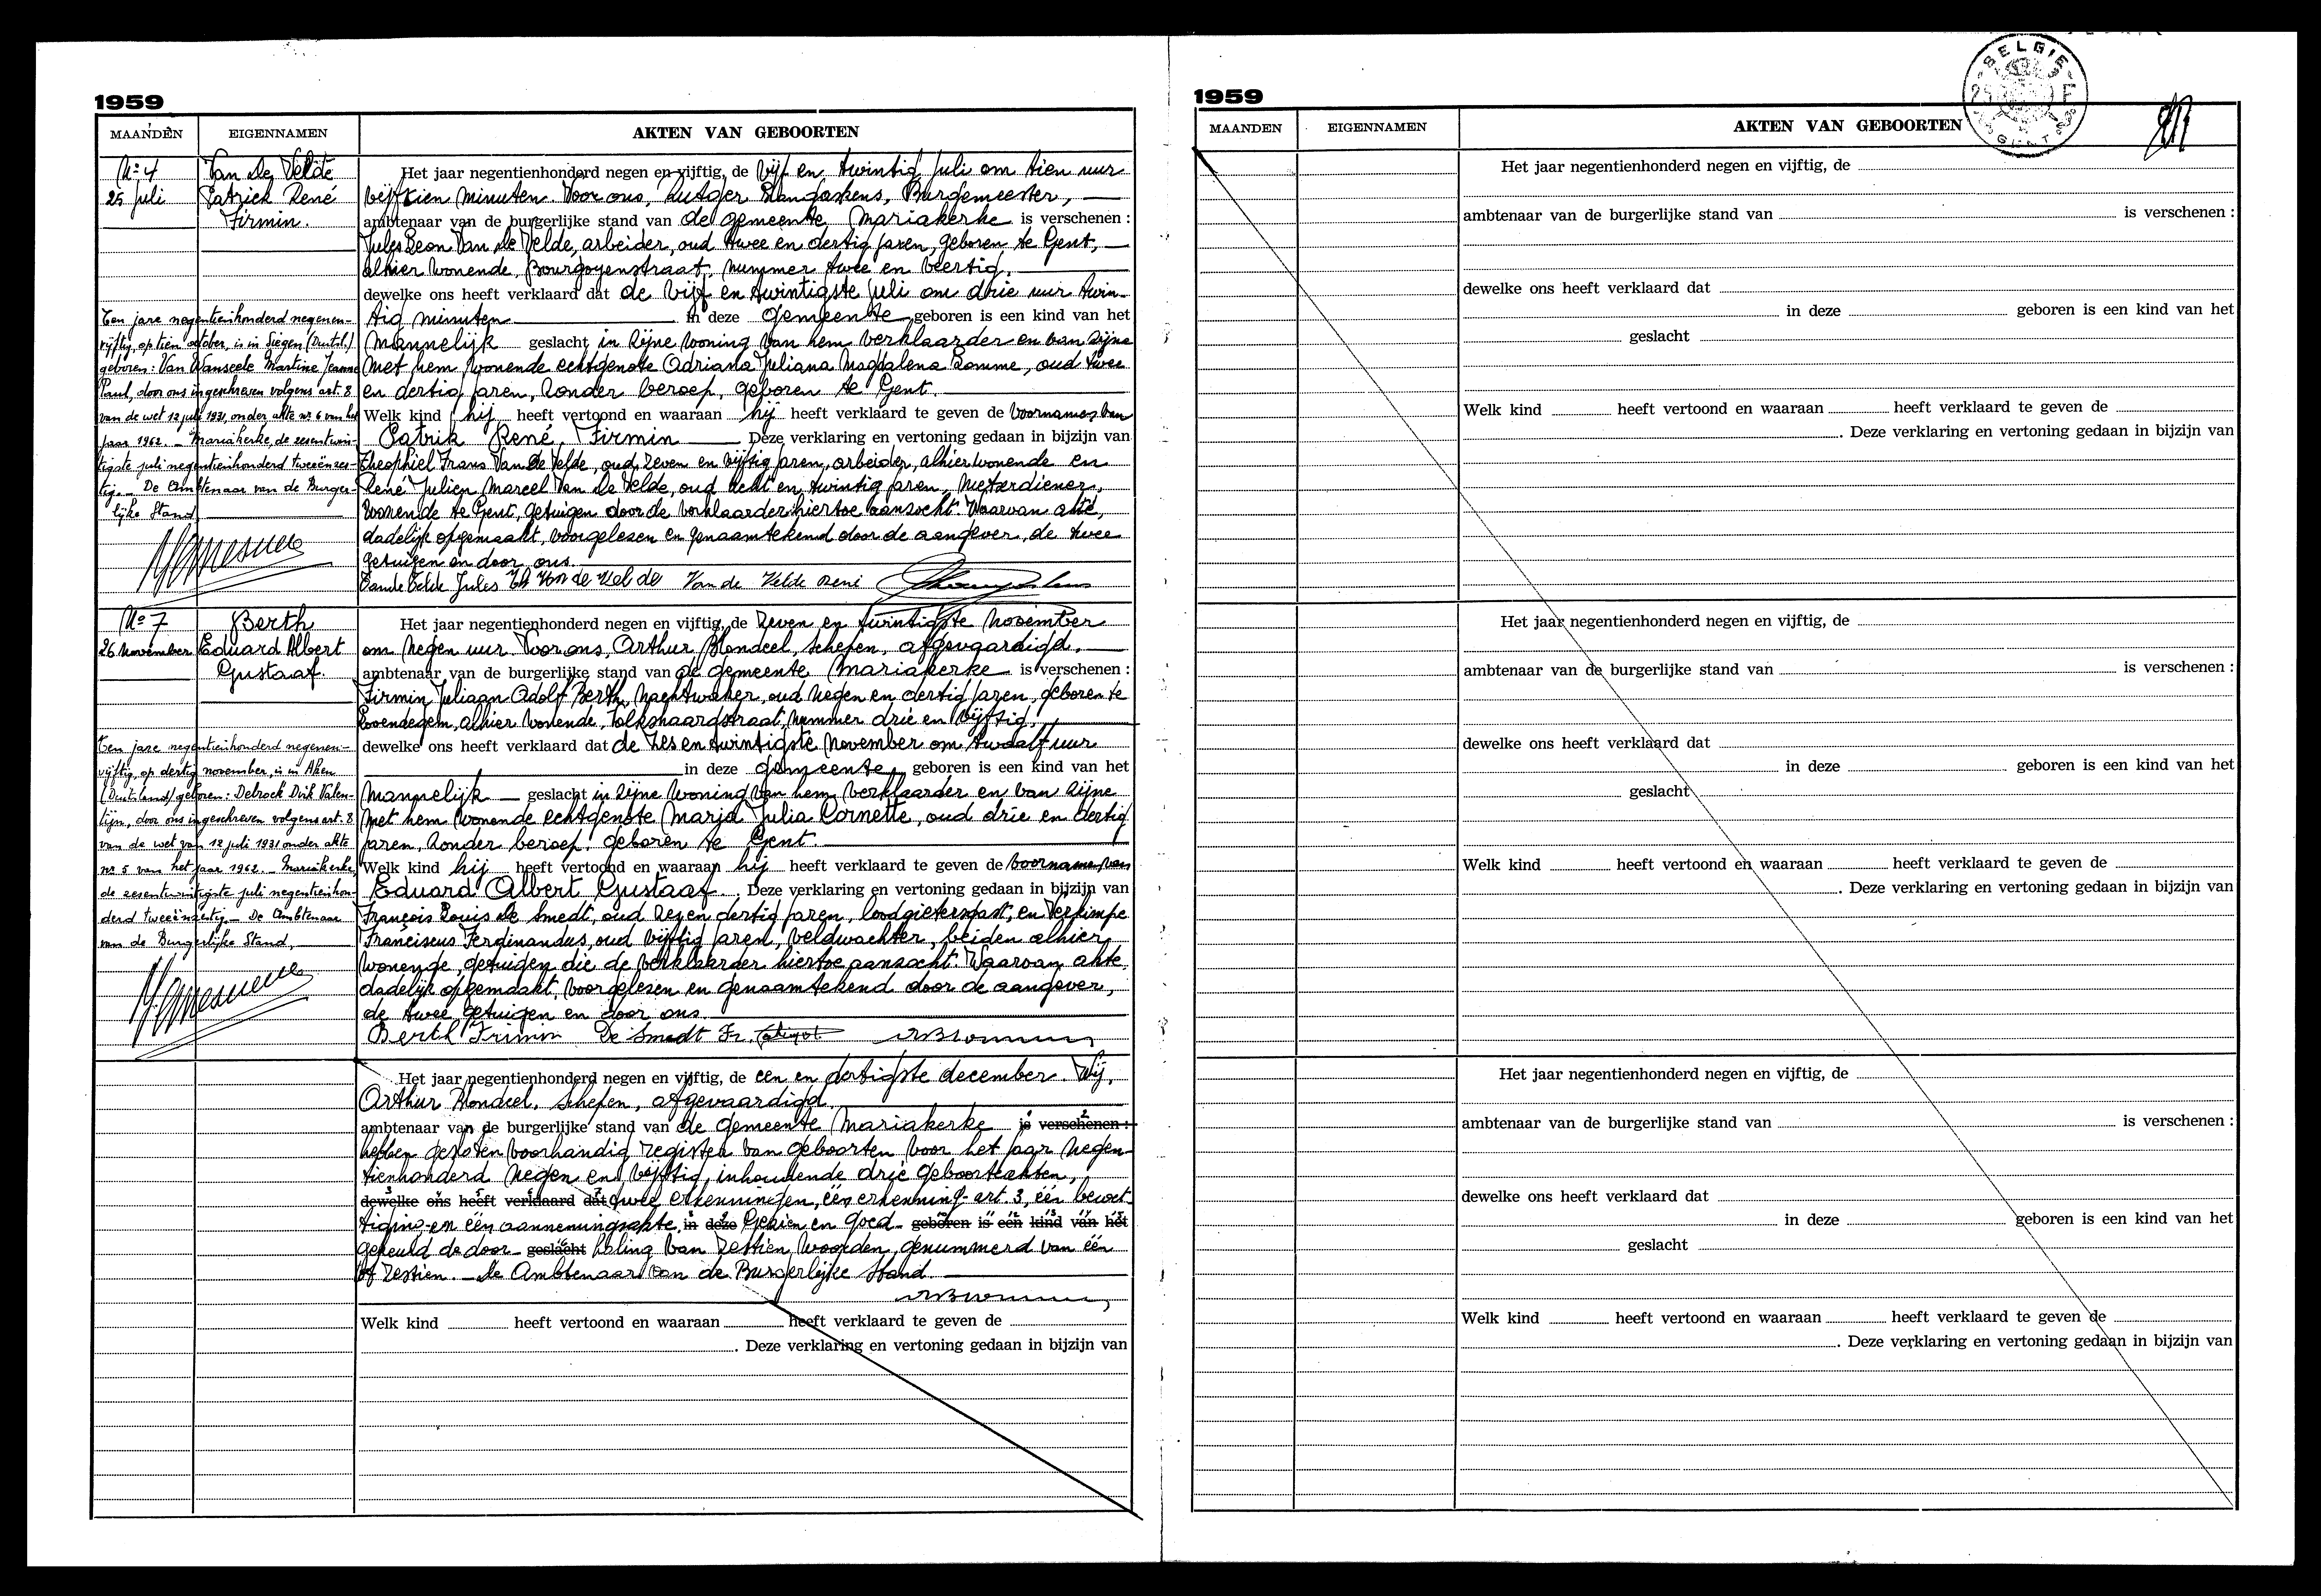 1959
MAANDEN EIGENNAMEN AKTEN VAN GEBOORTEN
No 4 Van de Velde
25 juli Patrick René
Firmin.
Het jaar negentienhonderd negen en vijftig, de vijf en twintig juli om tien uur
vijftien minuten. Voor ons, Rutger Burgemeester,
ambtenaar van de burgerlijke stand van de gemeente Mariakerke is verschenen :
Jules Leon Van de Velde, arbeider, oud twee en dertig jaren, geboren te Gent,
alhier wonende, Bourgoyenstraat, nummer twee en veertig.
dewelke ons heeft verklaard dat de vijf en twintigste juli om drie uur twin-
tig minuten in deze gemeente geboren is een kind van het
mannelijk geslacht in zijne woning van hem verklaarder en van zijne
met hem wonende echtgenote Adriana Juliana Magdalena Somme, oud twee
en dertig jaren, zonder beroep, geboren te Gent.
Welk kind hij heeft vertoond en waaraan hij heeft verklaard te geven de voornamen van
Patrik René, Firmin Deze verklaring en vertoning gedaan in bijzijn van
Theophiel Frans Van de Velde, oud zeven en vijftig jaren, arbeider, alhier wonende en
René Julien Marcel Van de Velde, oud acht en twintig jaren, metserdiener,
wonende te Gent, getuigen door de verklaarder hiertoe aanzocht. Waarvan akte,
dadelijk opgemaakt, voorgelezen en genaamtekend door de aangever, de twee
getuigen en door ons.
Van de Velde Jules Th Van de Velde Van de Velde René
Ten jare negentienhonderd negenen-
vijftig, op tien october, is in Siegen (Duitsl.)
geboren: Van Wanseele Martine Jeanne
Paul, door ons ingeschreven volgens art. 8
van de wet 12 juli 1931, onder akte nr 6 van het
jaar 1962. - Mariakerke, de zesentwin-
tigste juli negentienhonderd tweeënzes-
tig. - De Ambtenaar van de Burger-
lijke Stand
No 7 Berth
26 november Eduard Albert
Gustaaf.
Het jaar negentienhonderd negen en vijftig, de zeven en twintigste november
om negen uur Voor ons, Arthur Blondeel, schepen, afgevaardigd,
ambtenaar van de burgerlijke stand van de gemeente Mariakerke is verschenen :
Firmin Juliaan Adolf Berth, nachtwaker, oud negen en dertig jaren, geboren te
Lovendegem, alhier wonende, Kolkenaardstraat, nummer drie en vijftig.
dewelke ons heeft verklaard dat de zes en twintigste november om twaalf uur
in deze gemeente, geboren is een kind van het
mannelijk geslacht in zijne woning van hem verklaarder en van zijne
met hem wonende echtgenote Maria Julia Cornette, oud drie en dertig
jaren, zonder beroep, geboren te Gent.
Welk kind hij heeft vertoond en waaraan hij heeft verklaard te geven de voornamen van
Eduard Albert Gustaaf. Deze verklaring en vertoning gedaan in bijzijn van
François Louis de Smedt, oud dertig jaren, loodgietersgast, en Verkimpe
Franciscus Ferdinandus, oud vijftig jaren, veldwachter, beiden alhier
wonende, getuigen die de verklaarder hiertoe aanzocht. Waarvan akte,
dadelijk opgemaakt, voorgelezen en genaamtekend door de aangever,
de twee getuigen en door ons.
Berth Frimin De Smedt Fr.
Ten jare negentienhonderd negenen-
vijftig, op dertig november, is in Aken
(Duitsland) geboren: Debrock Dirk Valen-
tijn, door ons ingeschreven volgens art. 8
van de wet van 12 juli 1931 onder akte
nr 5 van het jaar 1962. - Mariakerke,
de zesentwintigste juli negentienhon-
derd tweeënzestig. - De Ambtenaar
van de Burgerlijke Stand,
Het jaar negentienhonderd negen en vijftig, de een en dertigste december. Wij,
Arthur Blondeel, schepen, afgevaardigd
ambtenaar van de burgerlijke stand van de gemeente Mariakerke is verschenen :
hebben gesloten voorhandig register van geboorten voor het jaar negen-
tienhonderd negen en vijftig, inhoudende drie geboorteakten,
dewelke ons heeft verklaard dat twee erkenningen, één erkenning art. 3, één bewet-
tiging en één aannemingsakte, in deze Gezien en goed- geboren is een kind van het
gekeurd de door- geslacht haling van zestien woorden, genummerd van één
tot zestien. - De Ambtenaar van de Burgerlijke Stand
Welk kind heeft vertoond en waaraan heeft verklaard te geven de
. Deze verklaring en vertoning gedaan in bijzijn van
1959
BELGIE
GENT
MAANDEN EIGENNAMEN AKTEN VAN GEBOORTEN
Het jaar negentienhonderd negen en vijftig, de
ambtenaar van de burgerlijke stand van is verschenen :
dewelke ons heeft verklaard dat
in deze geboren is een kind van het
geslacht
Welk kind heeft vertoond en waaraan heeft verklaard te geven de
. Deze verklaring en vertoning gedaan in bijzijn van
Het jaar negentienhonderd negen en vijftig, de
ambtenaar van de burgerlijke stand van is verschenen :
dewelke ons heeft verklaard dat
in deze geboren is een kind van het
geslacht
Welk kind heeft vertoond en waaraan heeft verklaard te geven de
. Deze verklaring en vertoning gedaan in bijzijn van
Het jaar negentienhonderd negen en vijftig, de
ambtenaar van de burgerlijke stand van is verschenen :
dewelke ons heeft verklaard dat
in deze geboren is een kind van het
geslacht
Welk kind heeft vertoond en waaraan heeft verklaard te geven de
. Deze verklaring en vertoning gedaan in bijzijn van